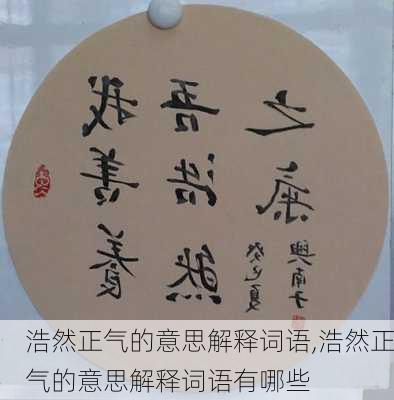 我善養
吾浩然
之氣
癸巳夏
興南子
浩然正气的意思解释词语,浩然正
气的意思解释词语有哪些